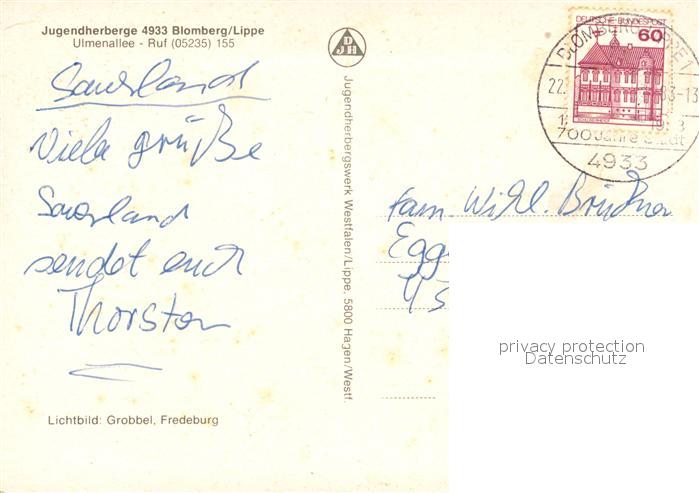 Jugendherberge 4933 Blomberg/Lippe
Ulmenallee - Ruf (05235) 155
Sauerland
Viele grüße
Sauerland
sendet euch
Thorsten
Lichtbild: Grobbel, Fredeburg
DJH
Jugendherbergswerk Westfalen/Lippe, 5800 Hagen/Westf.
DEUTSCHE BUNDESPOST
60
BLOMBERG, LIPPE 1
22.
83-13
700 Jahre Stadt
4933
Fam. Wilh. Brückner
Egg
privacy protection
Datenschutz